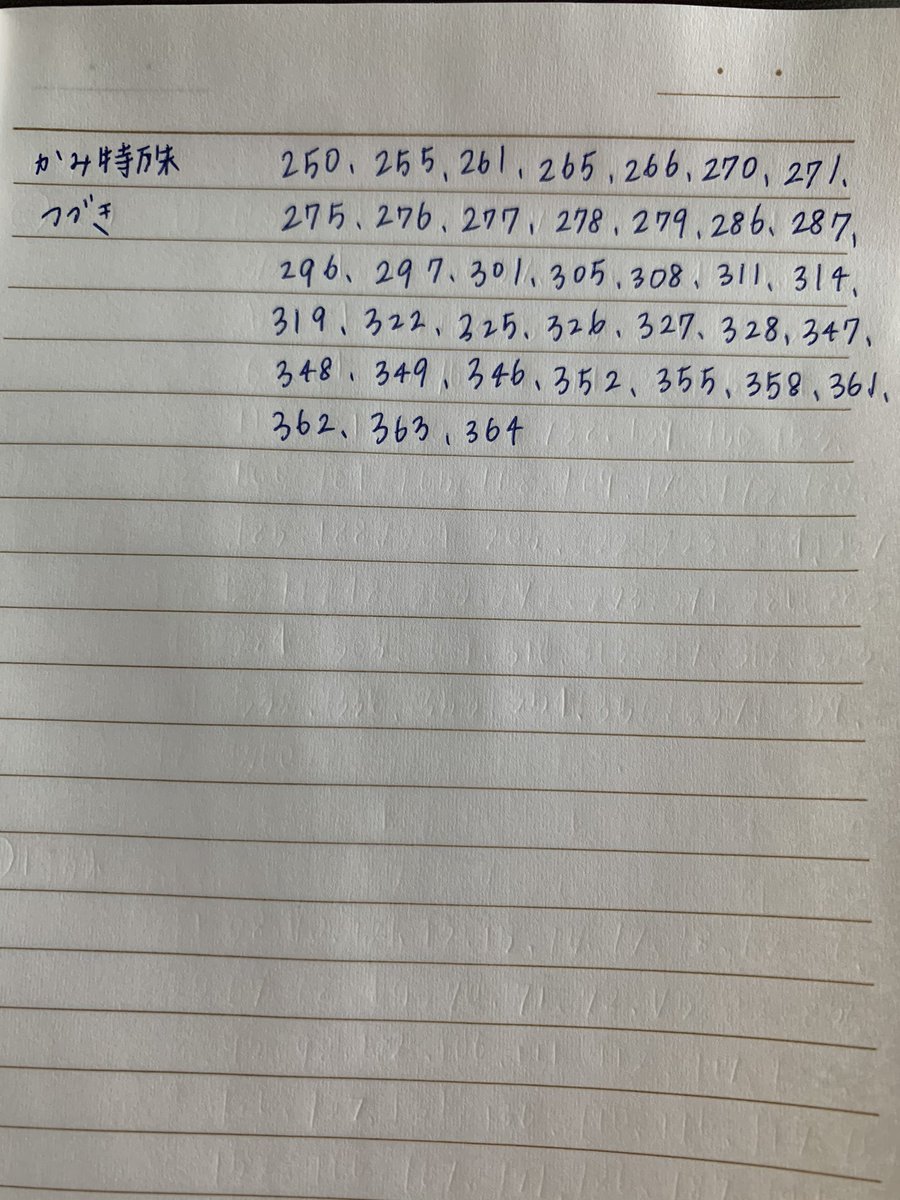 かみ特殊 250、255、261、265、266、270、271、
つづき 275、276、277、278、279、286、287、
296、297、301、305、308、311、314、
319、322、325、326、327、328、347、
348、349、346、352、355、358、361、
362、363、364